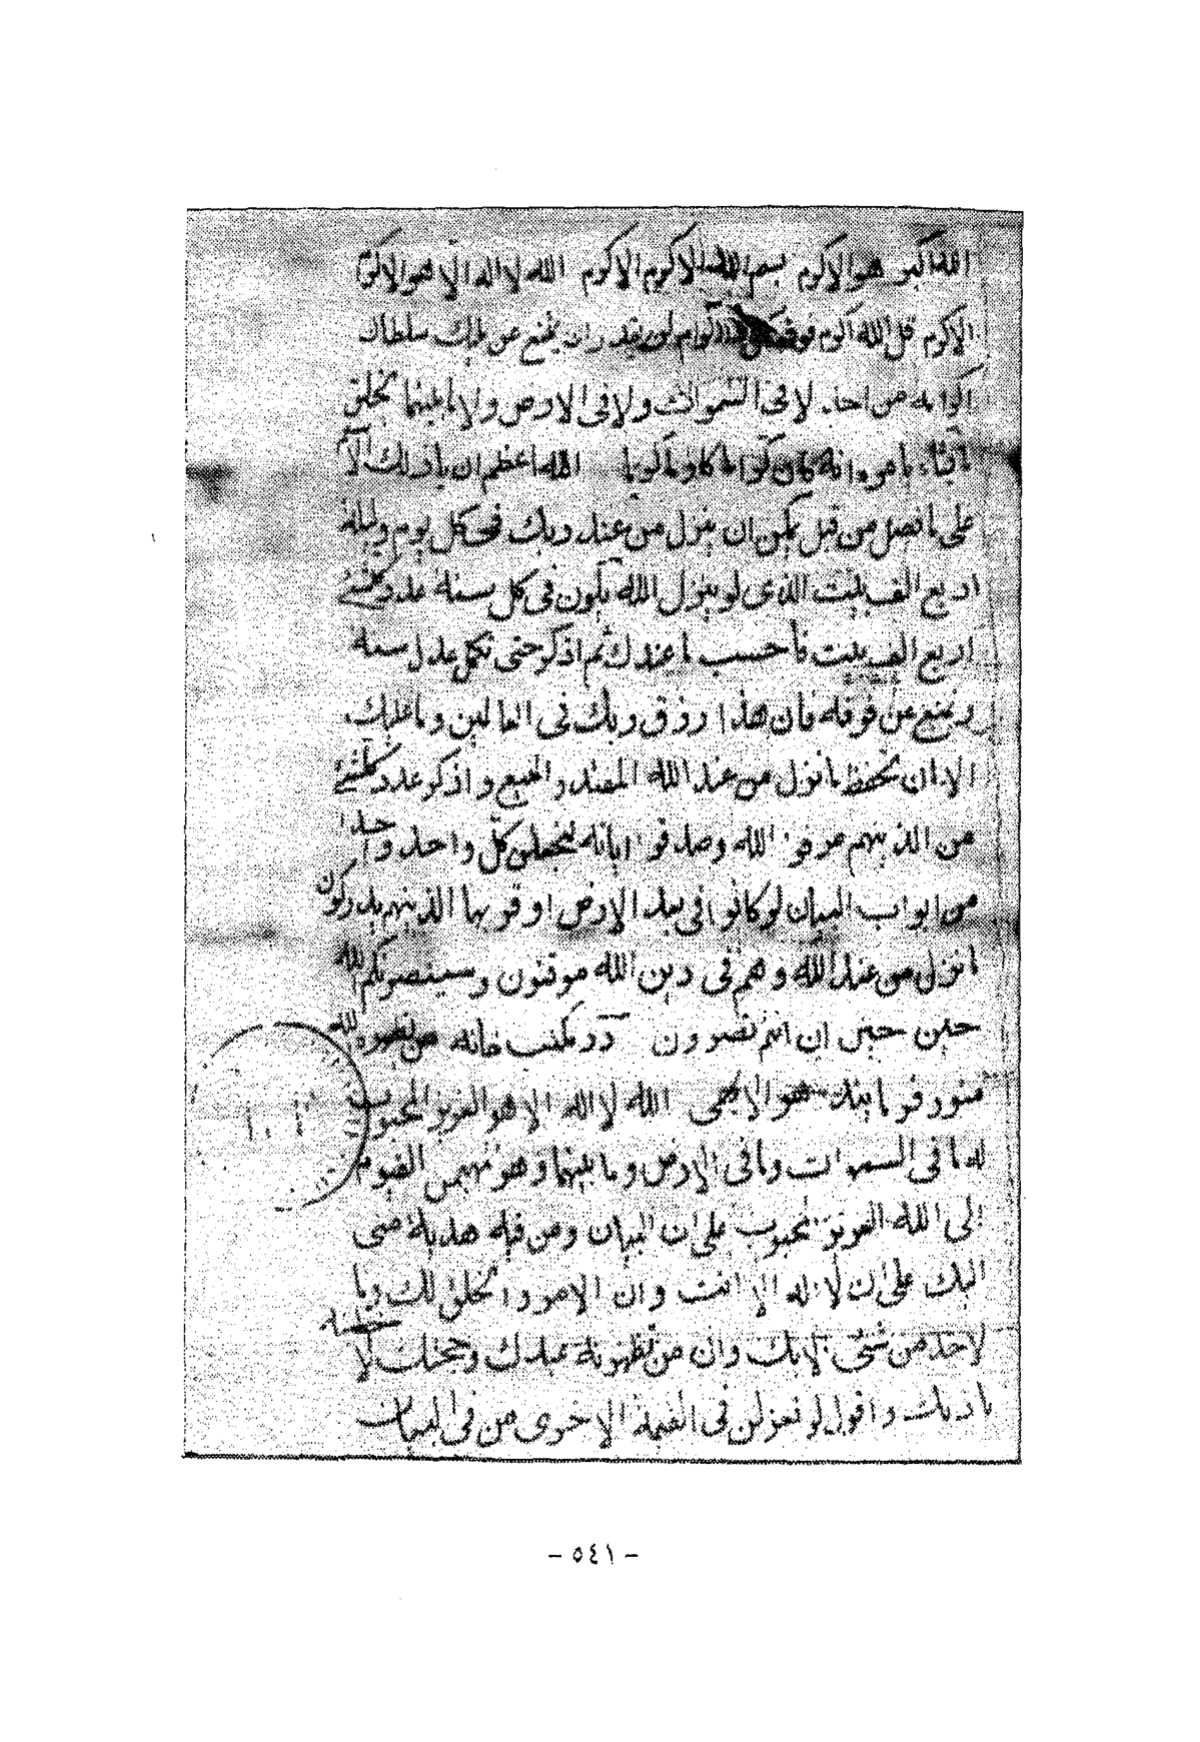 الله اکبر هو الاکرم بسم الله الاکرم الاکرم الله لا اله الا هو الاکرم
الاکرم قل الله اکرم فوق کل ذا اکرام لن یقدر ان یمتنع عن ملیك سلطان
اکرامه من احد لا فی السموات ولا فی الارض ولا ما بینهما یخلق
ما یشاء بامره انه کان کراما کارما کریما الله اعظم ان یاذن لك
علی ما نصل من قبل یمکن ان ینزل من عند ربك فی کل یوم ولیلة
اربع الف بیت الذی لو ینزل الله یکون فی کل سنة عدد کلشیء
اربع الف بیت فاحسب ما عندك ثم اذکر حتی تکمل عدل سنة
عن فوقه فان هذا رزق ربك فی العالمین وما علیك
الا ان تحفظ ما نزل من عند الله المقتدر المنیع و اذکر عدد کلشیء
من الذینهم عرفوا الله وصدقوا بایاته لیجعلن کل واحد واحدا
من ابواب البیان لو کانوا فی بعد الارض او قربها الذینهم یدرکون
ما نزل من عند الله وهم فی دین الله موقنون وسینصرنکم الله
حین حین ان انتم تنصرون در مکتب خانه من یظهره الله
منور فرمایند هو الابهی الله لا اله الا هو العزیز المحبوب
له ما فی السموات وما فی الارض وما بینهما وهو مهیمن القیوم
الی الله العزیز المحبوب علی ان البیان ومن فیه هدیة منی
الیك علی ان لا اله الا انت وان الامر والخلق لك وما
لاحد من شیء الا بك وان من تظهرنه عبدك وحجتك لا خاطبنه
باذنك واقول لو تعزلن فی القیمة الاخری من فی البیان
- ٥٤١ -